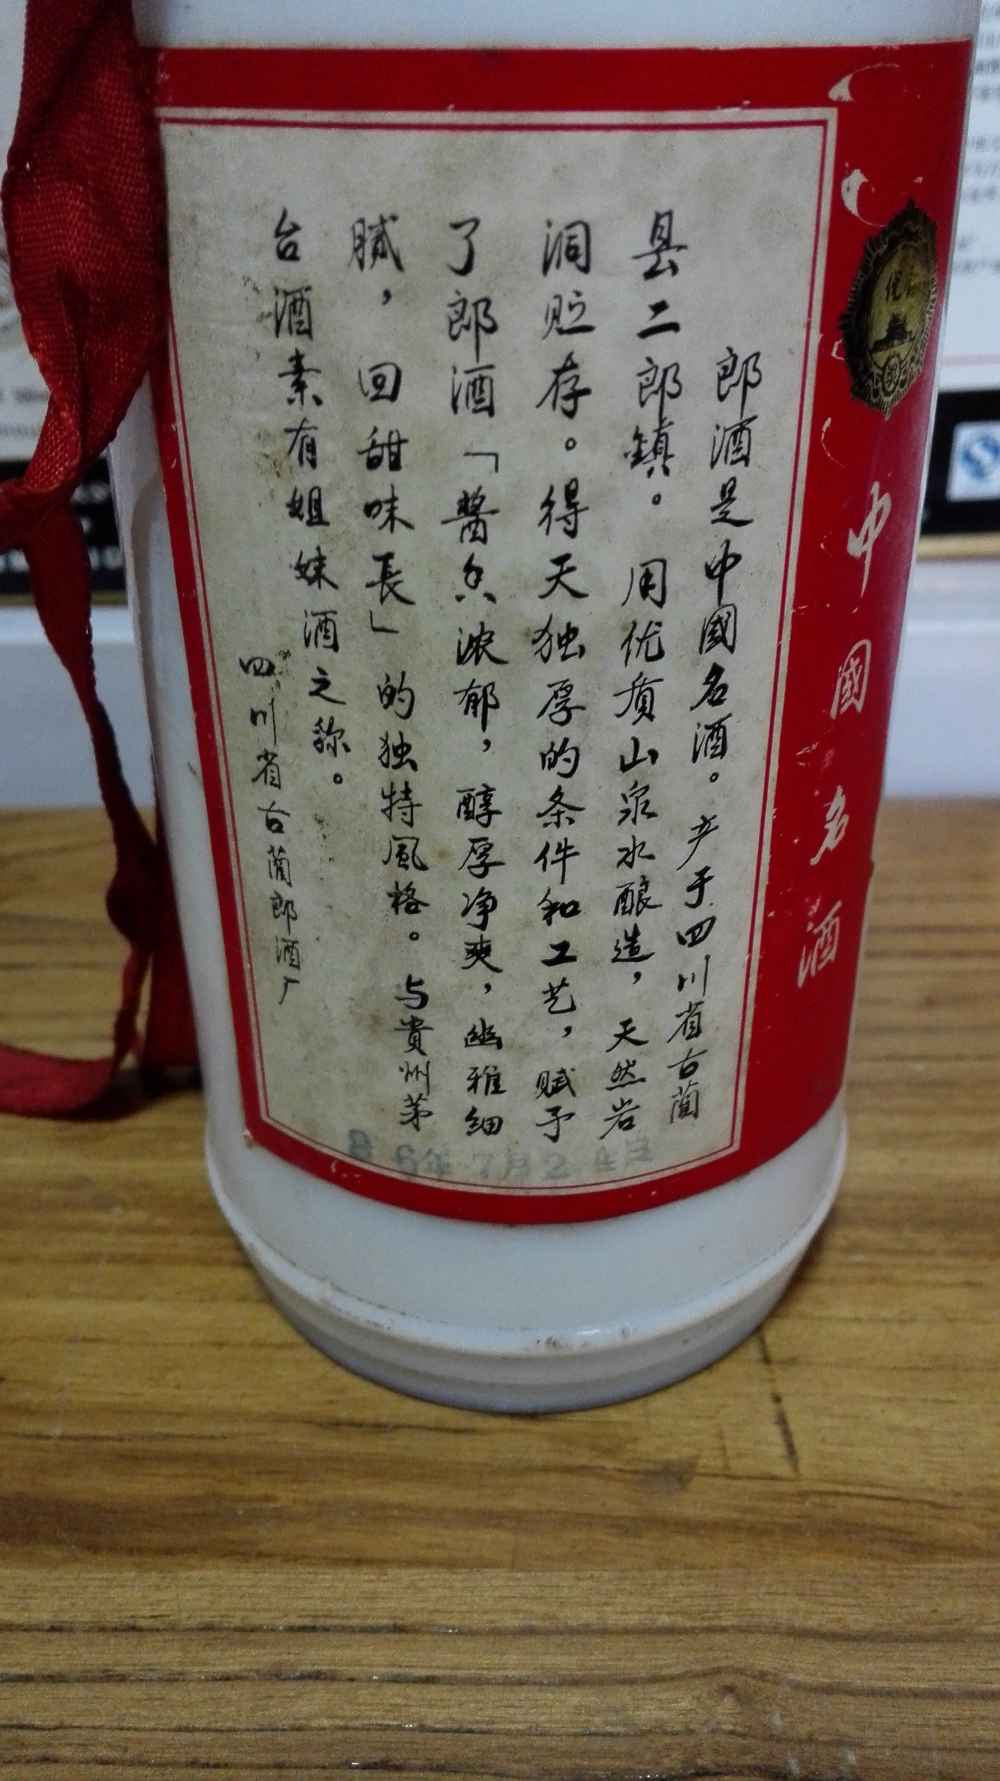 郎酒是中國名酒。产于四川省古蔺
县二郎鎮。用优质山泉水酿造，天然岩
洞贮存。得天独厚的条件和工艺，赋予
了郎酒「醬香浓郁，醇厚净爽，幽雅细
腻，回甜味長」的独特風格。与貴州茅
台酒素有姐妹酒之称。
四川省古蔺郎酒厂
86年7月24日
中國名酒
优